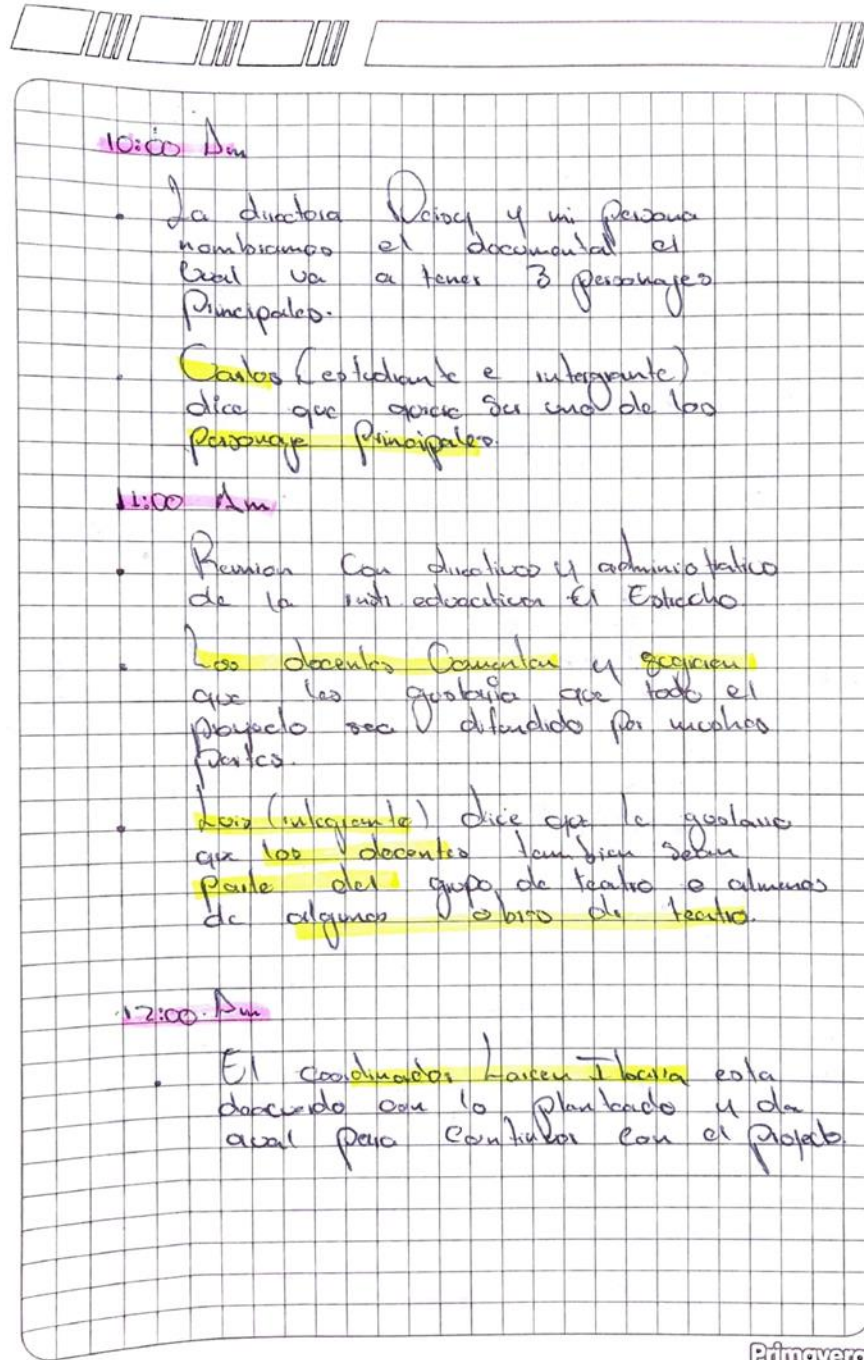 10:00 Am
. La directora Deisy y mi persona
nombramos el documental el
cual va a tener 3 personajes
Principales.
. Carlos (estudiante e integrante)
dice que quiere ser uno de los
personaje Principales.
11:00 Am
. Reunion con directivos y administrativo
de la insti educativa El Estrecho.
. Los docentes Comentan y sogieren
que les gustaria que todo el
proyecto sea difundido por muchas
partes.
. Luis (integrante) dice que le gustaria
que los docentes tambien sean
parte del grupo de teatro o almenos
de algunas obras de teatro.
12:00 Pm
. El coordinador esta
deacuerdo con lo planteado y da
aval para continuar con el projecto.
Primavera